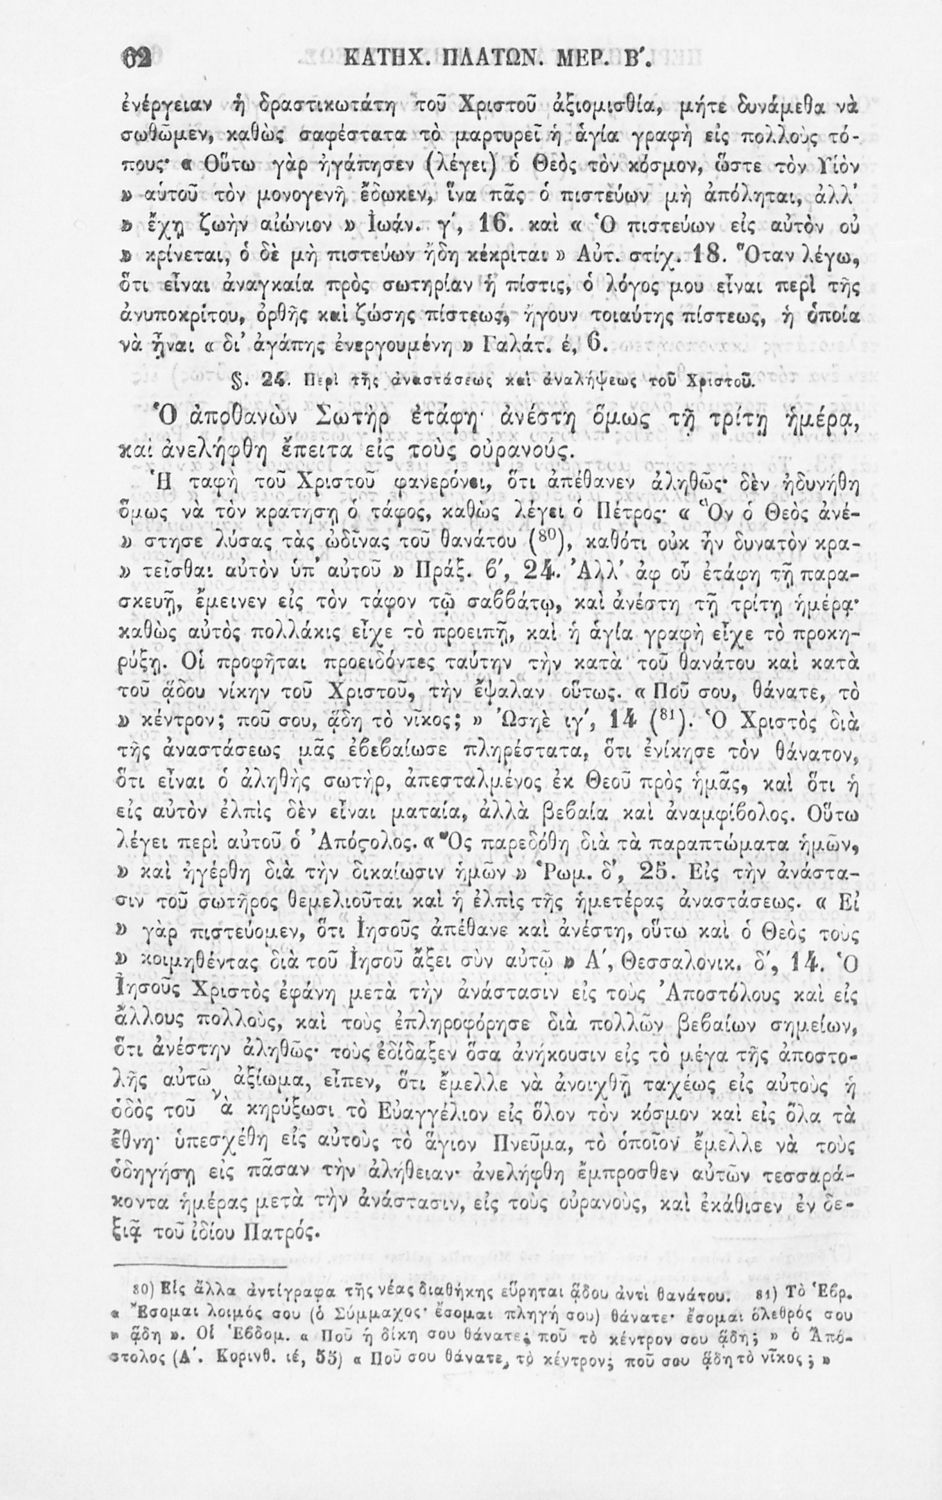 62 ΚΑΤΗΧ. ΠΛΑΤΩΝ. ΜΕΡ. Β΄.
ἐνέργειαν ἡ δραστικωτάτη τοῦ Χριστοῦ ἀξιομισθία, μήτε δυνάμεθα νὰ
σωθῶμεν, καθὼς σαφέστατα τὸ μαρτυρεῖ ἡ ἁγία γραφὴ εἰς πολλοὺς τό-
πους· « Οὕτω γὰρ ἠγάπησεν (λέγει) ὁ Θεὸς τὸν κόσμον, ὥστε τὸν Υἱὸν
» αὑτοῦ τὸν μονογενῆ ἔδωκεν, ἵνα πᾶς ὁ πιστεύων μὴ ἀπόληται, ἀλλ'
» ἔχῃ ζωὴν αἰώνιον » Ἰωάν. γ΄, 16. καὶ « Ὁ πιστεύων εἰς αὐτὸν οὐ
» κρίνεται, ὁ δὲ μὴ πιστεύων ἤδη κέκριται » Αὐτ. στίχ. 18. Ὅταν λέγω,
ὅτι εἶναι ἀναγκαία πρὸς σωτηρίαν ἡ πίστις, ὁ λόγος μου εἶναι περὶ τῆς
ἀνυποκρίτου, ὀρθῆς καὶ ζώσης πίστεως, ἤγουν τοιαύτης πίστεως, ἡ ὁποία
νὰ ἦναι « δι' ἀγάπης ἐνεργουμένη » Γαλάτ. έ, 6.
§. 24. Περὶ τῆς ἀναστάσεως καὶ ἀναλήψεως τοῦ Χριστοῦ.
Ὁ ἀποθανὼν Σωτὴρ ἐτάφη· ἀνέστη ὅμως τῇ τρίτῃ ἡμέρᾳ,
καὶ ἀνελήφθη ἔπειτα εἰς τοὺς οὐρανούς.
Ἡ ταφὴ τοῦ Χριστοῦ φανερόνει, ὅτι ἀπέθανεν ἀληθῶς· δὲν ἠδυνήθη
ὅμως νὰ τὸν κρατήσῃ ὁ τάφος, καθὼς λέγει ὁ Πέτρος· « Ὃν ὁ Θεὸς ἀνέ-
» στησε λύσας τὰς ὠδῖνας τοῦ θανάτου (80), καθότι οὐκ ἦν δυνατὸν κρα-
» τεῖσθαι αὐτὸν ὑπ' αὐτοῦ » Πράξ. β΄, 24. Ἀλλ' ἀφ οὗ ἐτάφη τῇ παρα-
σκευῇ, ἔμεινεν εἰς τὸν τάφον τῷ σαββάτῳ, καὶ ἀνέστη τῇ τρίτῃ ἡμέρᾳ·
καθὼς αὐτὸς πολλάκις εἶχε τὸ προειπῇ, καὶ ἡ ἁγία γραφὴ εἶχε τὸ προκη-
ρύξῃ. Οἱ προφῆται προειδόντες ταύτην τὴν κατὰ τοῦ θανάτου καὶ κατὰ
τοῦ ᾅδου νίκην τοῦ Χριστοῦ, τὴν ἔψαλαν οὕτως. « Ποῦ σου, θάνατε, τὸ
» κέντρον; ποῦ σου, ᾅδη τὸ νῖκος; » Ὡσηὲ ιγ΄, 14 (81). Ὁ Χριστὸς διὰ
τῆς ἀναστάσεως μᾶς ἐβεβαίωσε πληρέστατα, ὅτι ἐνίκησε τὸν θάνατον,
ὅτι εἶναι ὁ ἀληθὴς σωτὴρ, ἀπεσταλμένος ἐκ Θεοῦ πρὸς ἡμᾶς, καὶ ὅτι ἡ
εἰς αὐτὸν ἐλπὶς δὲν εἶναι ματαία, ἀλλὰ βεβαία καὶ ἀναμφίβολος. Οὕτω
λέγει περὶ αὐτοῦ ὁ Ἀπόςολος. « Ὃς παρεδόθη διὰ τὰ παραπτώματα ἡμῶν,
» καὶ ἠγέρθη διὰ τὴν δικαίωσιν ἡμῶν » Ῥωμ. δ΄, 25. Εἰς τὴν ἀνάστα-
σιν τοῦ σωτῆρος θεμελιοῦται καὶ ἡ ἐλπὶς τῆς ἡμετέρας ἀναστάσεως. « Εἰ
» γὰρ πιστεύομεν, ὅτι Ἰησοῦς ἀπέθανε καὶ ἀνέστη, οὕτω καὶ ὁ Θεὸς τοὺς
» κοιμηθέντας διὰ τοῦ Ἰησοῦ ἄξει σὺν αὐτῷ » Α΄, Θεσσαλονικ. δ΄, 14. Ὁ
Ἰησοῦς Χριστὸς ἐφάνη μετὰ τὴν ἀνάστασιν εἰς τοὺς Ἀποστόλους καὶ εἰς
ἄλλους πολλοὺς, καὶ τοὺς ἐπληροφόρησε διὰ πολλῶν βεβαίων σημείων,
ὅτι ἀνέστην ἀληθῶς· τοὺς ἐδίδαξεν ὅσα ἀνήκουσιν εἰς τὸ μέγα τῆς ἀποστο-
λῆς αὐτῶν ἀξίωμα, εἶπεν, ὅτι ἔμελλε νὰ ἀνοιχθῇ ταχέως εἰς αὐτοὺς ἡ
ὁδὸς τοῦ νὰ κηρύξωσι τὸ Εὐαγγέλιον εἰς ὅλον τὸν κόσμον καὶ εἰς ὅλα τὰ
ἔθνη· ὑπεσχέθη εἰς αὐτοὺς τὸ ἅγιον Πνεῦμα, τὸ ὁποῖον ἔμελλε νὰ τοὺς
ὁδηγήσῃ εἰς πᾶσαν τὴν ἀλήθειαν· ἀνελήφθη ἔμπροσθεν αὐτῶν τεσσαρά-
κοντα ἡμέρας μετὰ τὴν ἀνάστασιν, εἰς τοὺς οὐρανοὺς, καὶ ἐκάθισεν ἐν δε-
ξιᾷ τοῦ ἰδίου Πατρός.
80) Εἰς ἄλλα ἀντίγραφα τῆς νέας διαθήκης εὕρηται ᾅδου ἀντὶ θανάτου. 81) Τὸ Ἑβρ.
« Ἔσομαι λοιμός σου (ὁ Σύμμαχος· ἔσομαι πληγή σου) θάνατε· ἔσομαι ὄλεθρός σου
» ᾅδη ». Οἱ Ἑβδομ. « Ποῦ ἡ δίκη σου θάνατε; ποῦ τὸ κέντρον σου ᾅδη; » ὁ Ἀπό-
στολος (Α΄. Κορινθ. ιέ, 55) « Ποῦ σου θάνατε, τὸ κέντρον; ποῦ σου ᾅδη τὸ νῖκος; »